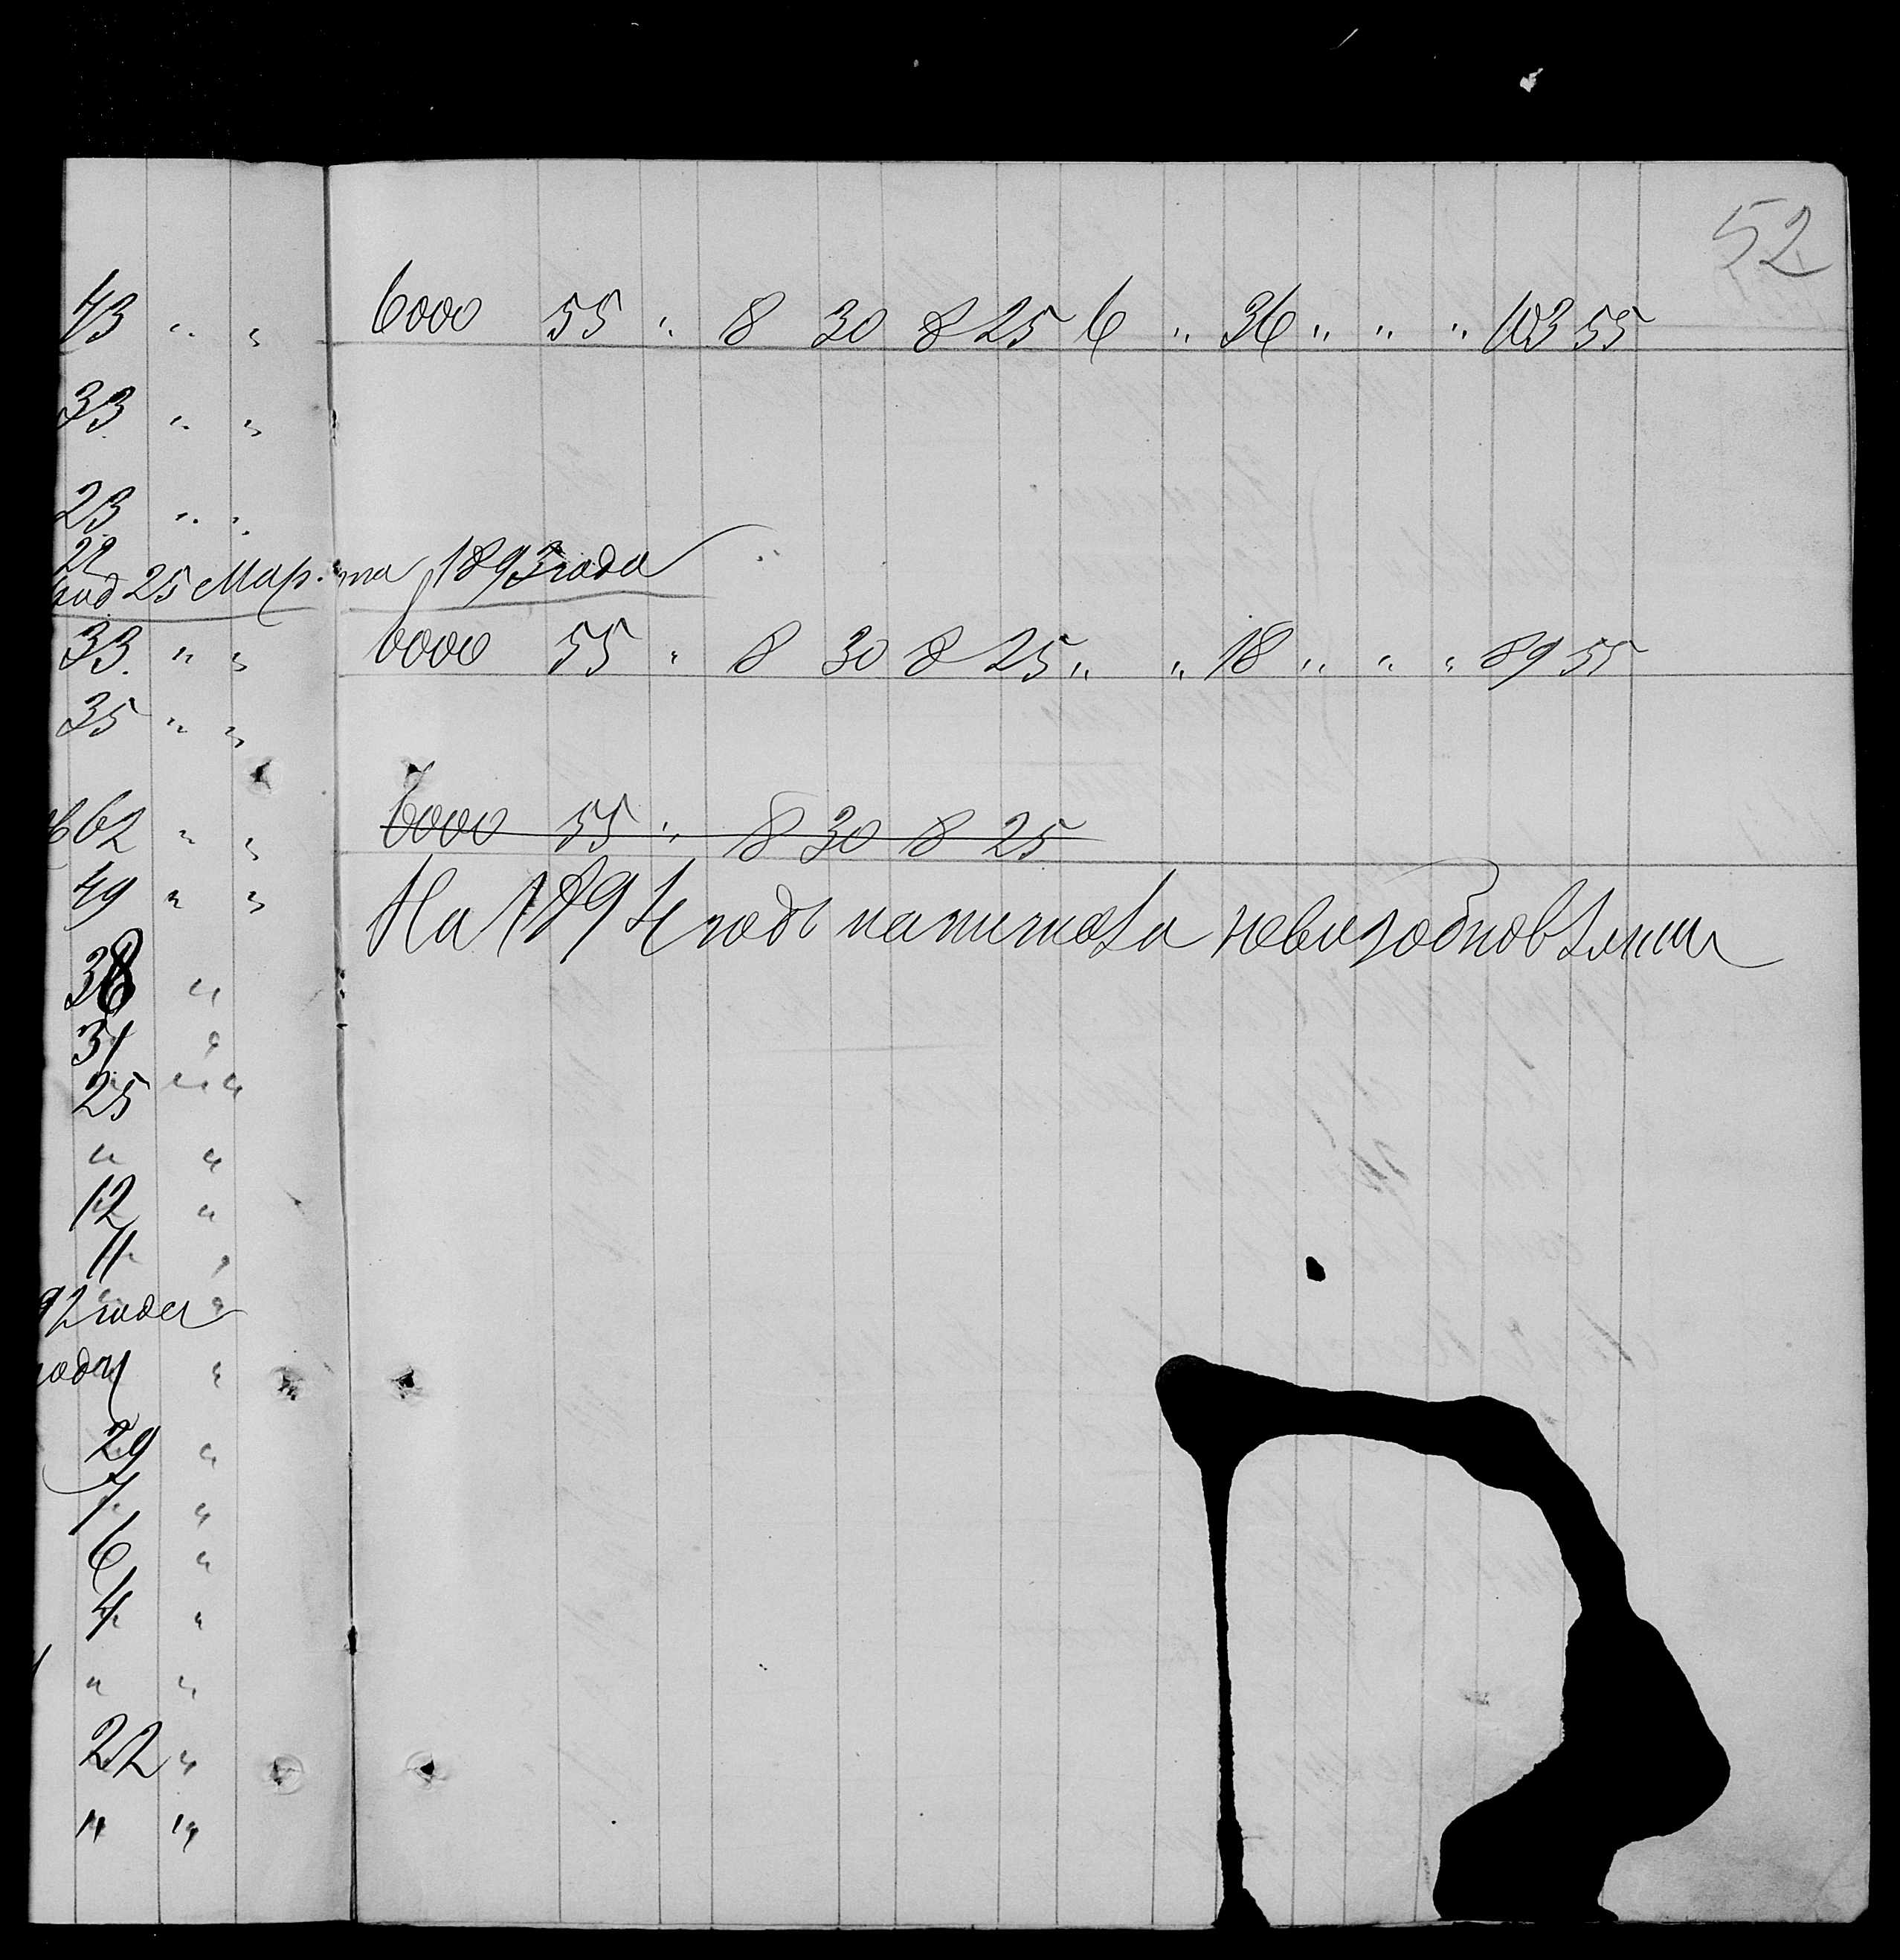 52
43 " " 6000 55 " 8 30 8 25 6 " 36 " " " 103 55
33 " "
23 " "
22
25 Марта 1893 года
33 " " 6000 55 " 8 30 8 25 " " 18 " " " 89 55
35 " "
62 " " 6000 55 " 8 30 8 25
49 " "
На 1894 годъ
38 "
31 "
25 " "
" "
12 "
11 "
92 года
"
29 "
7 "
6 "
4 "
" "
22 "
" "